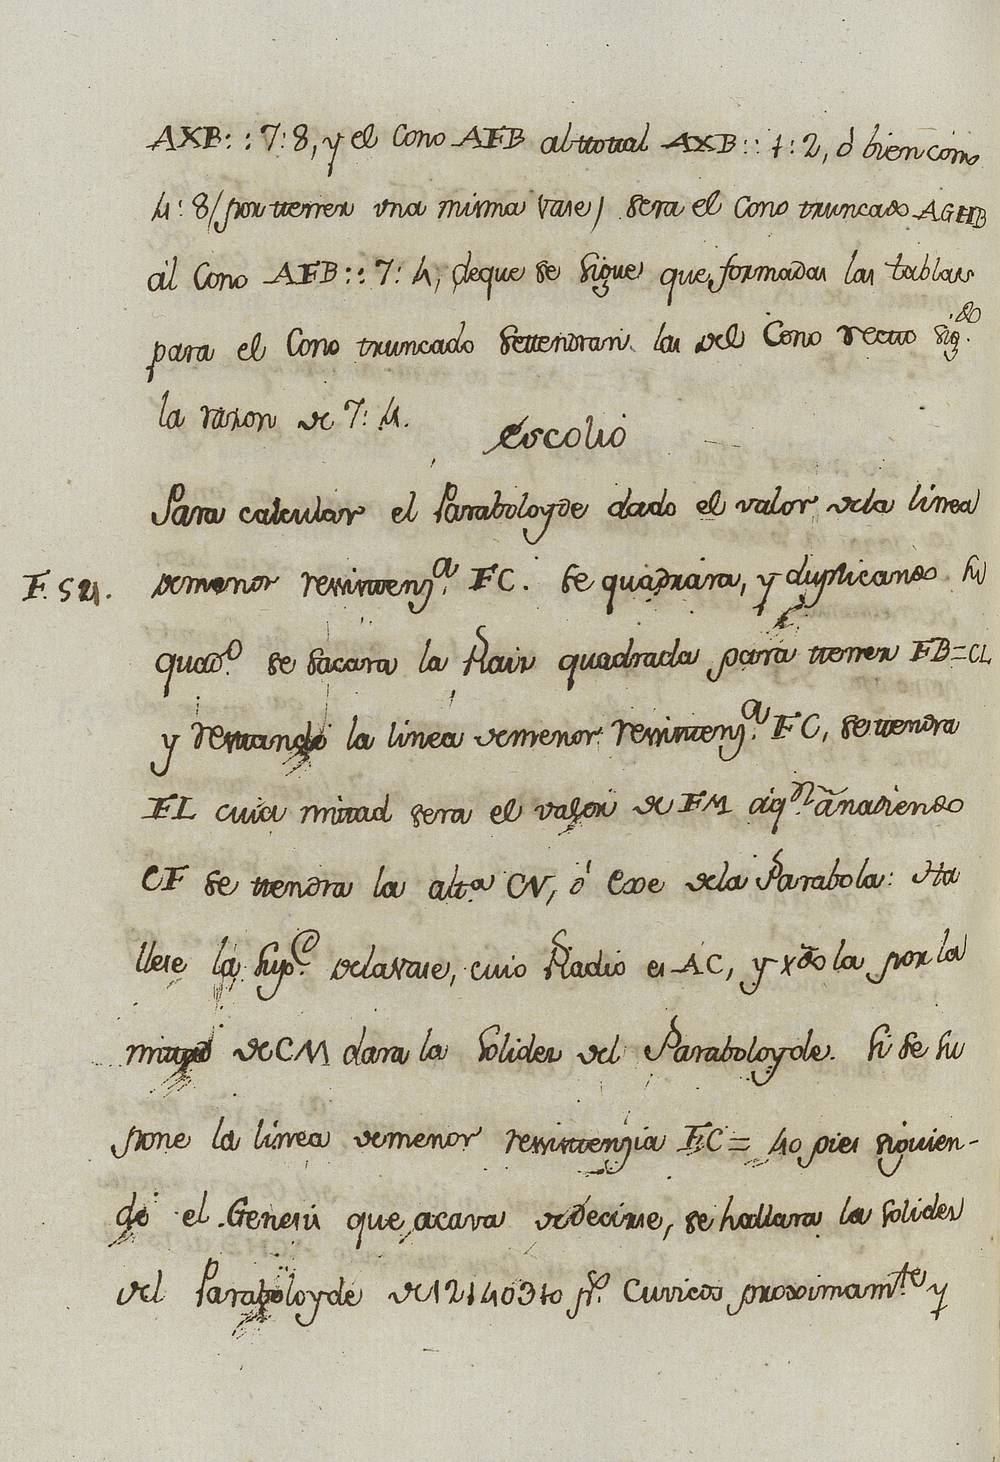 AXB: : 7: 8, y el Cono AFB al ttottal AXB: : 1: 2, ò bien cómo
4: 8 (por ttener una misma vase) sera el Cono truncado AGHB
al Cono AFB: : 7: 4, deque se sigue que, formadas las tablas
para el Cono truncado settendran las del Cono recto sig.do
la razon de 7: 4.
Escolio
Para calcular el Paraboloyde dado el valor dela linea
F. 54. demenor resisttenz.a FC. se quadrara, y duplicando su
quad.o se sacara la Raiz quadrada para ttener FB=CL
y resttando la linea demenor resisttenz.a FC, settendra
FL cuia mitad sera el valor de FM áiq.n añadiendo
CF se ttendra la alt.a CN, ó Exe dela Parabola: Ha
llese la sup.e delavase, cuio Radio es AC, y xdola por la
mittad de CM dara la solidez del Paraboloyde. Si se su
pone la linea demenor resisttenzia FC = 40 pies siguien-
do el Genesis que, acava dedecirse, se hallara la solidez
del Paraboloyde de 12140310 p.s Cuvicos proximam.te y